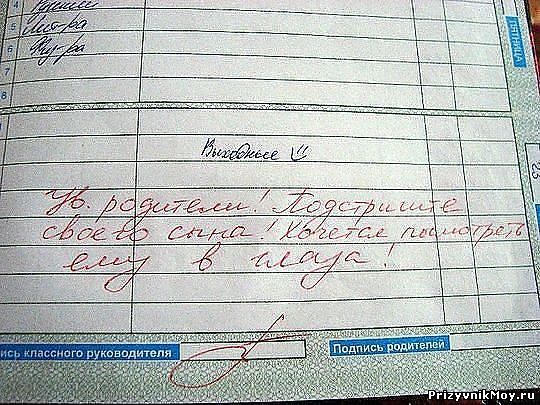 4
5 Лит-ра
6 Физ-ра
7
8
ПЯТНИЦА
Выходные
23
Ув. родители! Подстригите
своего сына! Хочется посмотреть
ему в глаза!
ись классного руководителя
Подпись родителей
PrizyvnikMoy.ru